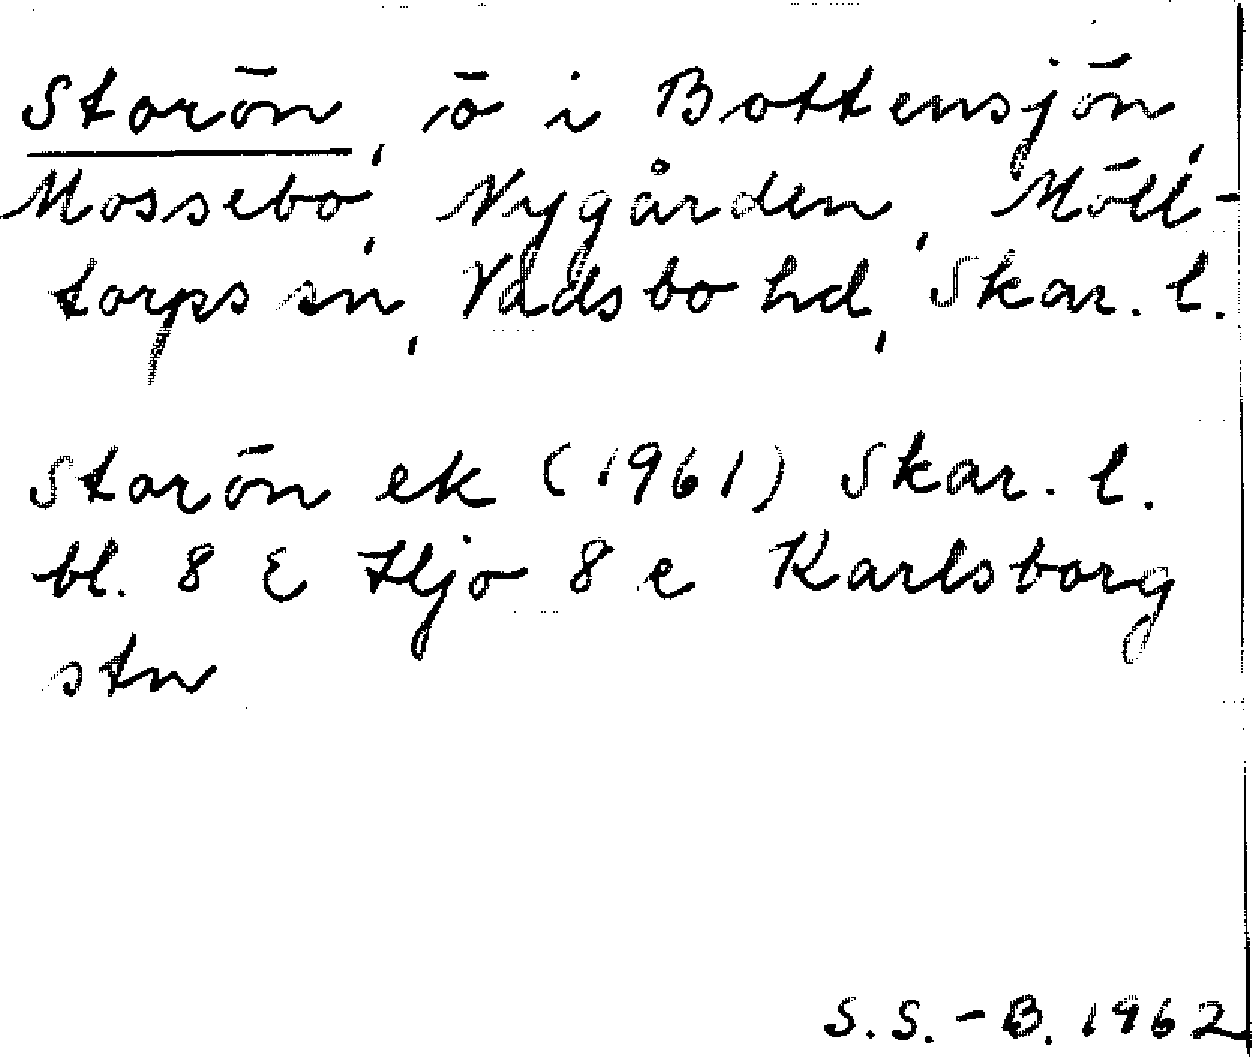 Storön, ö i Bottensjön,
Mossebo, Nygården, Möll-
torps sn, Vadsbo hd, Skar. l.
Storön ek (1961) Skar. l.
bl. 8 E Hjo 8 e Karlsborg
stn
S.S.-B. 1962